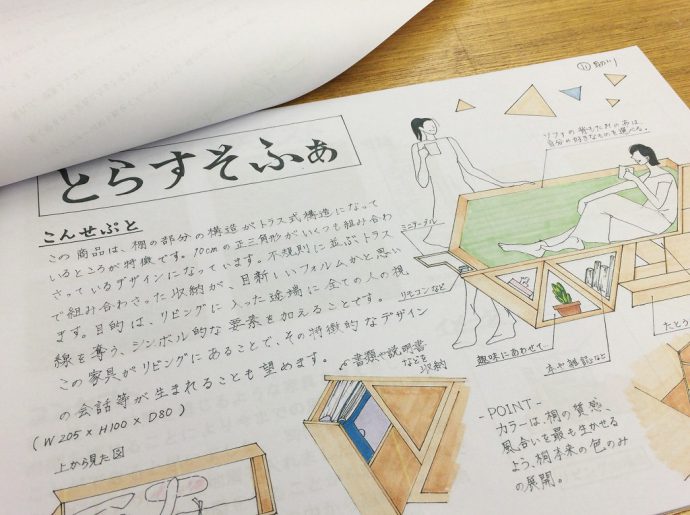 とらすそふぁ
こんせぷと
この商品は、桐の部分の構造がトラス式構造になって
いるところが特徴です。10cmの正三角形がいくつも組み合わ
さっているデザインになっています。不規則に並ぶトラス
で組み合わさった収納が、目新しいフォルムかと思い
ます。目的は、リビングに入った途端に全ての人の視
線を奪う、シンボル的な要素を加えることです。
この家具がリビングにあることで、その特徴的なデザイン
の会話等が生まれることも望めます。
(W205×H100×D80)
上から見た図
書類や説明書
などを収納
⑪
ソファの背もたれのあは、
自分の好きなものを選べる。
ミニテーブル
リモコンなど
趣味にあわせて
本や雑誌など
たとう
-POINT-
カラーは、桐の質感、
風合いを最も生かせる
よう、桐本来の色のみ
の展開。